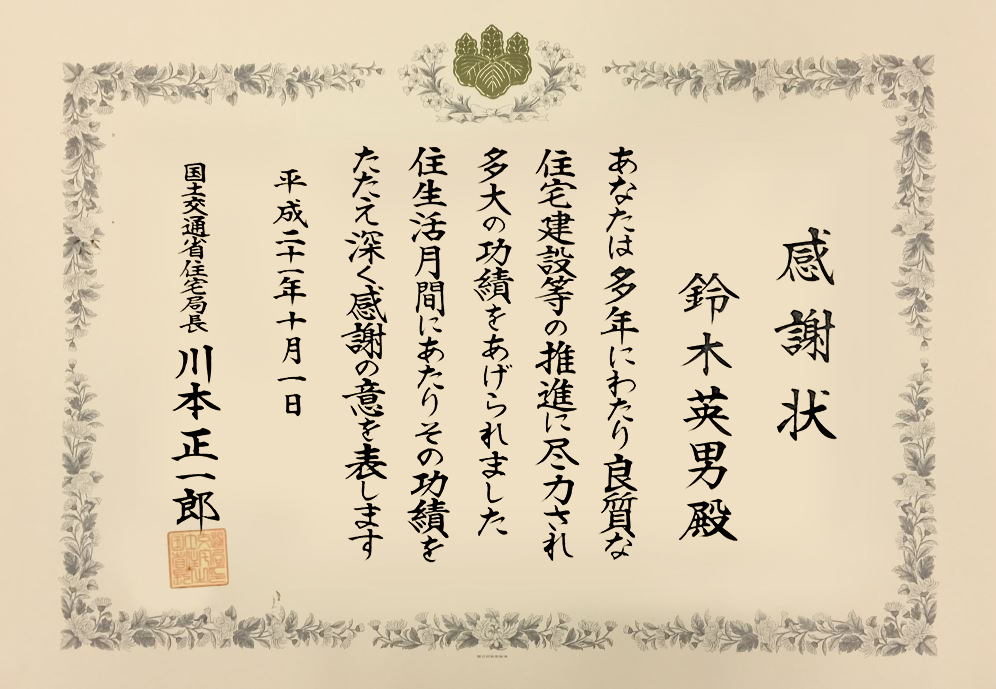 感謝状
鈴木英男殿
あなたは多年にわたり良質な
住宅建設等の推進に尽力され
多大の功績をあげられました
住生活月間にあたりその功績を
たたえ深く感謝の意を表します
平成二十一年十月一日
国土交通省住宅局長 川本正一郎